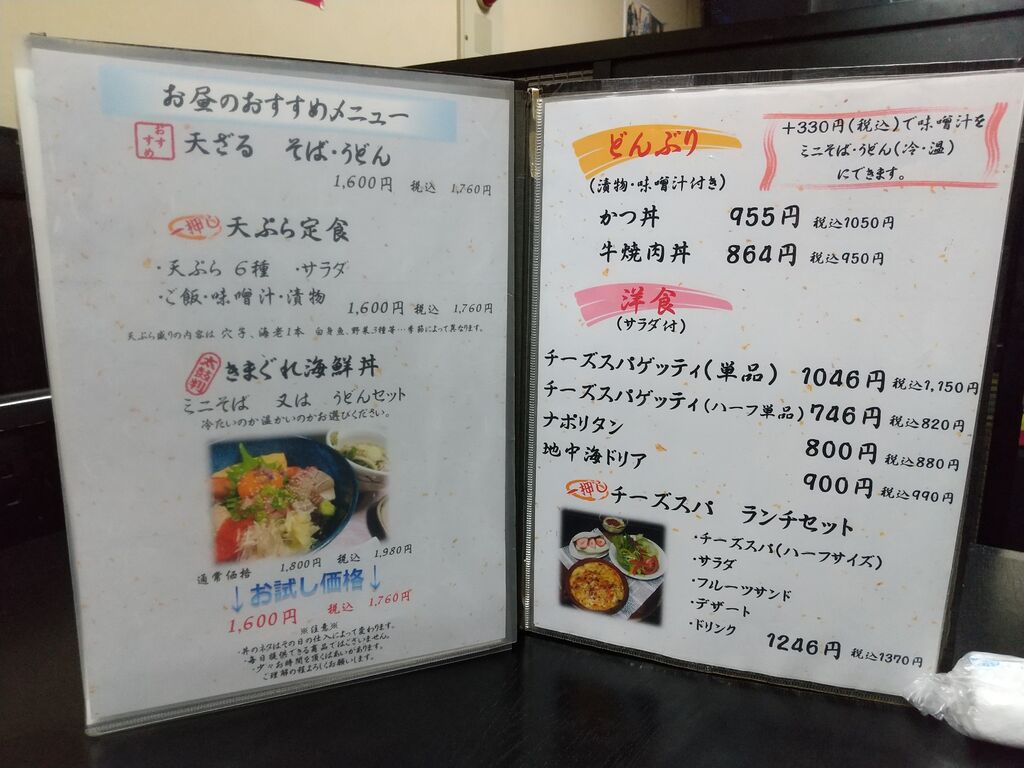 お昼のおすすめメニュー
おすすめ
天ざる そば・うどん
1,600円 税込 1,760円
一押し 天ぷら定食
・天ぷら 6種 ・サラダ
・ご飯・味噌汁・漬物
1,600円 税込 1,760円
天ぷら盛りの内容は 穴子、海老1本 白身魚、野菜3種等…季節によって異なります。
太鼓判 きまぐれ海鮮丼
ミニそば 又は うどんセット
冷たいのか温かいのかお選びください。
通常価格 1,800円 税込 1,980円
↓お試し価格↓
1,600円 税込 1,760円
※注意※
・丼のネタはその日の仕入によって変わります。
・毎日提供できる商品ではございません。
・少々お時間を頂くばあいがあります。
ご理解の程よろしくお願いします。
+330円(税込)で味噌汁を
ミニそば・うどん(冷・温)
にできます。
どんぶり
(漬物・味噌汁付き)
かつ丼 955円 税込1050円
牛焼肉丼 864円 税込950円
洋食
(サラダ付)
チーズスパゲッティ(単品) 1046円 税込1,150円
チーズスパゲッティ(ハーフ単品) 746円 税込820円
ナポリタン 800円 税込880円
地中海ドリア 900円 税込990円
一押し チーズスパ ランチセット
・チーズスパ(ハーフサイズ)
・サラダ
・フルーツサンド
・デザート
・ドリンク
1246円 税込1370円